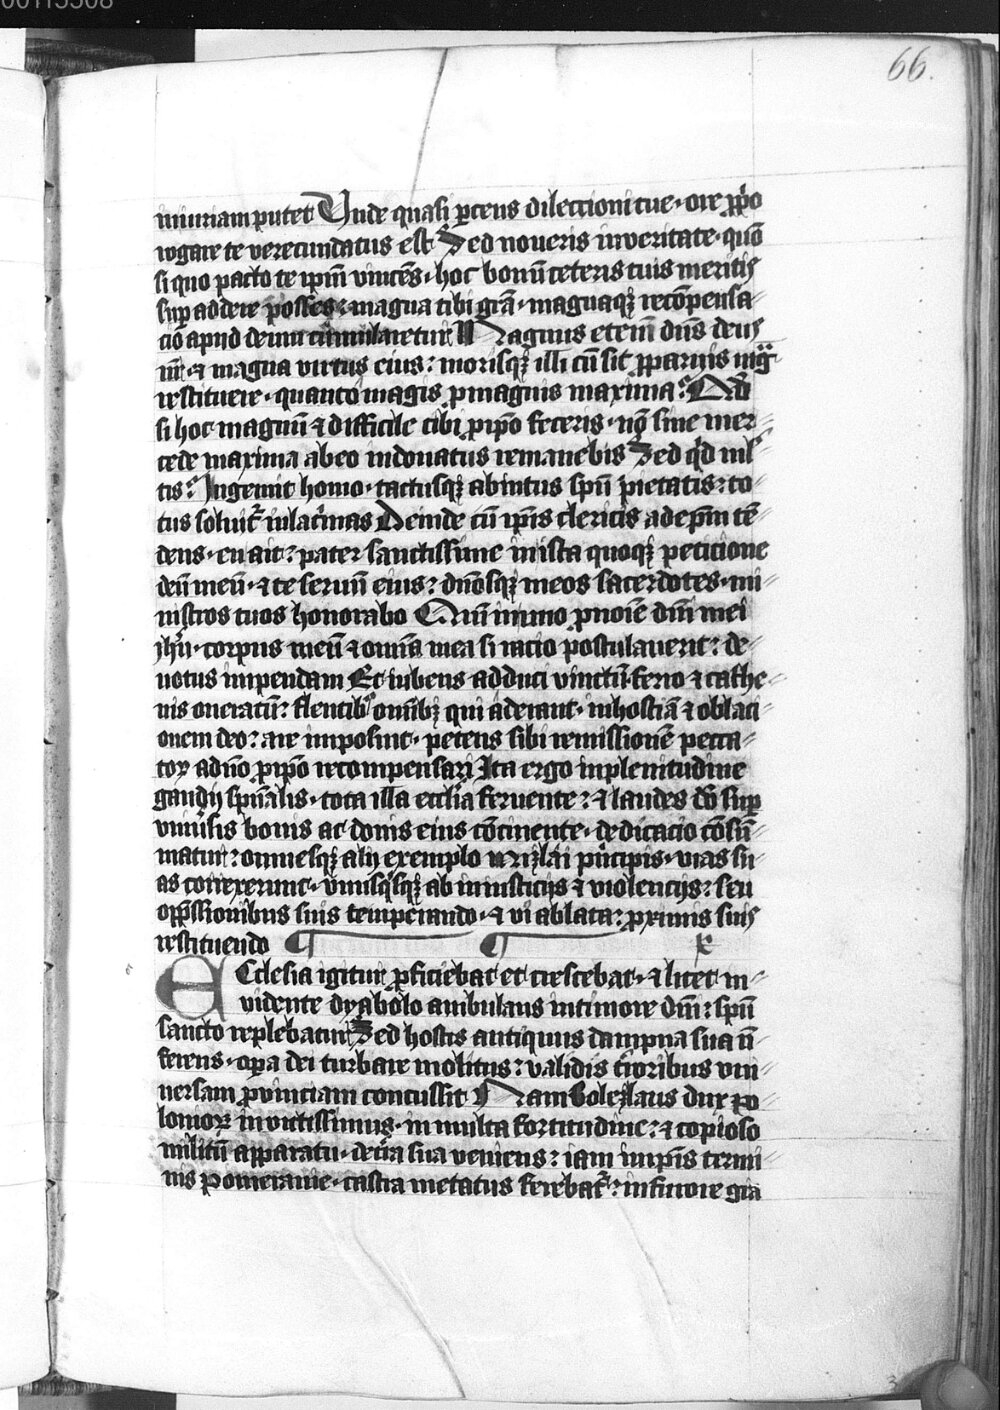 00115508
66.
iniuriam putet Unde quasi ꝑcens dilectioni tue · ore ꝓp̄o
rogare te verecundatus est Sed noueris in veritate · quō
si quo pacto te ip̄m vinc̄es · hoc bonū ceteris tuis meritis
suꝑaddere posses : magna tibi gr̄a · magnaqꝫ recōpensa
cio apud deum cumularetur Magnus etenī dn̄s deus
nr̄ ⁊ magna virtus eius : morisqꝫ illi cū sit ꝓ paruis mgᷓ
restituere · quanto magis ꝓ magnis maxima : Qd̄
si hoc magnū ⁊ difficile tibi ꝓ xp̄o feceris · nō sine mer
cede maxima ab eo indonatus remanebis Sed qͥd ml̄
tis : Ingemit homo · tactusqꝫ ab intus spū pietatis : to
tus soluit᷑ in lac̄mas Deinde cū ip̄is clericis ad ep̄m tē
dens · en ait : pater sanctissime in ista quoqꝫ peticione
deū meū · ⁊ te seruū eius : dn̄osqꝫ meos sacerdotes · mi
nistros tuos honorabo Quī immo ꝓ noīe dn̄i mei
ihū · corpus meū ⁊ omīa mea si racio postulauerit : de
uotus impendam Et iubens adduci vinctū ferro ⁊ cathe
nis oneratū : flentibꝰ om̄ibꝫ qui aderant · in hostiā ⁊ oblaci
onem deo : are imposuit · petens sibi remissionē pecca
toꝝ a dn̄o ꝓ xp̄o recompensari Ita ergo in plenitudine
gaudij spūalis · tota illa eccl̄ia feruente : ⁊ laudes dō suꝑ
vniūsis bonis ac donis eius cōcinente · dedicacio cōsū
matur : omnesqꝫ alij exemplo mizlai pn̄cipis · vias su
as correxerunt · vnusqͥsqꝫ ab iniusticijs ⁊ violencijs : seu
opp̄ssionibus suis temperando · ⁊ vi ablata : ꝓximis suis
restituendo
Ecclesia igitur ꝓficiebat et crescebat · ⁊ licet in
vidente dyabolo ambulans in timore dn̄i : spū
sancto replebatur Sed hostis antiquus dampna sua nō
ferens · oꝑa dei turbare molitus : validis t̄roribus vni
uersam ꝓuinciam concussit Nam Bolezlaus dux po
lonioꝝ inuictissimus · in multa fortitudine : ⁊ copioso
militū apparatu · de t̄ra sua veniens : iam in ip̄is termi
nis Pomeranie · castra metatus ferebat᷑ : in furore gra